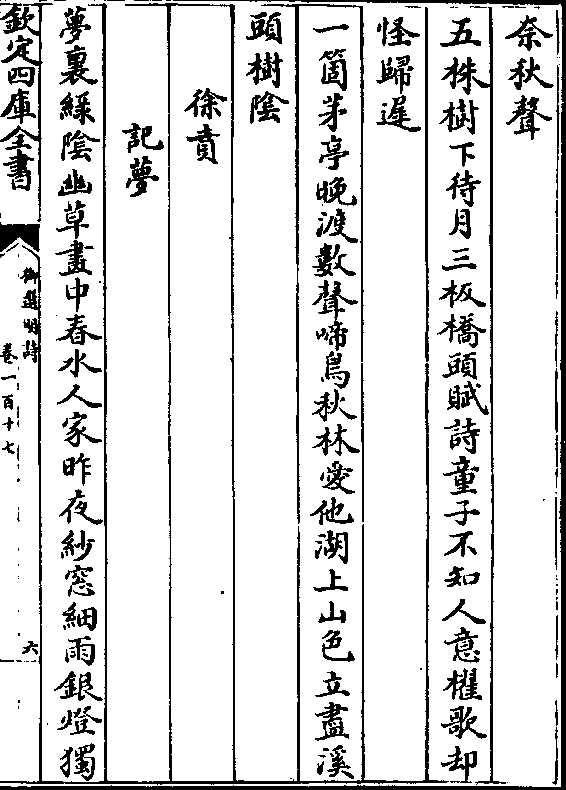 奈秋聲
五株樹下待月三板橋頭賦詩童子不知人意櫂歌却
怪歸遲
一箇茅亭晚渡數聲啼鳥秋林愛他湖上山色立盡溪
頭樹陰
徐賁
記夢
夢裏緑陰幽草畫中春水人家昨夜紗窓細雨銀燈獨
欽定四庫全書
御選明詩
卷一百十七
六